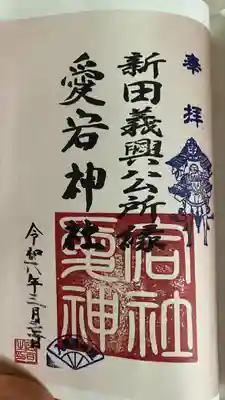 奉拝
新田義興公所縁
愛宕神社
愛宕神社
令和八年三月